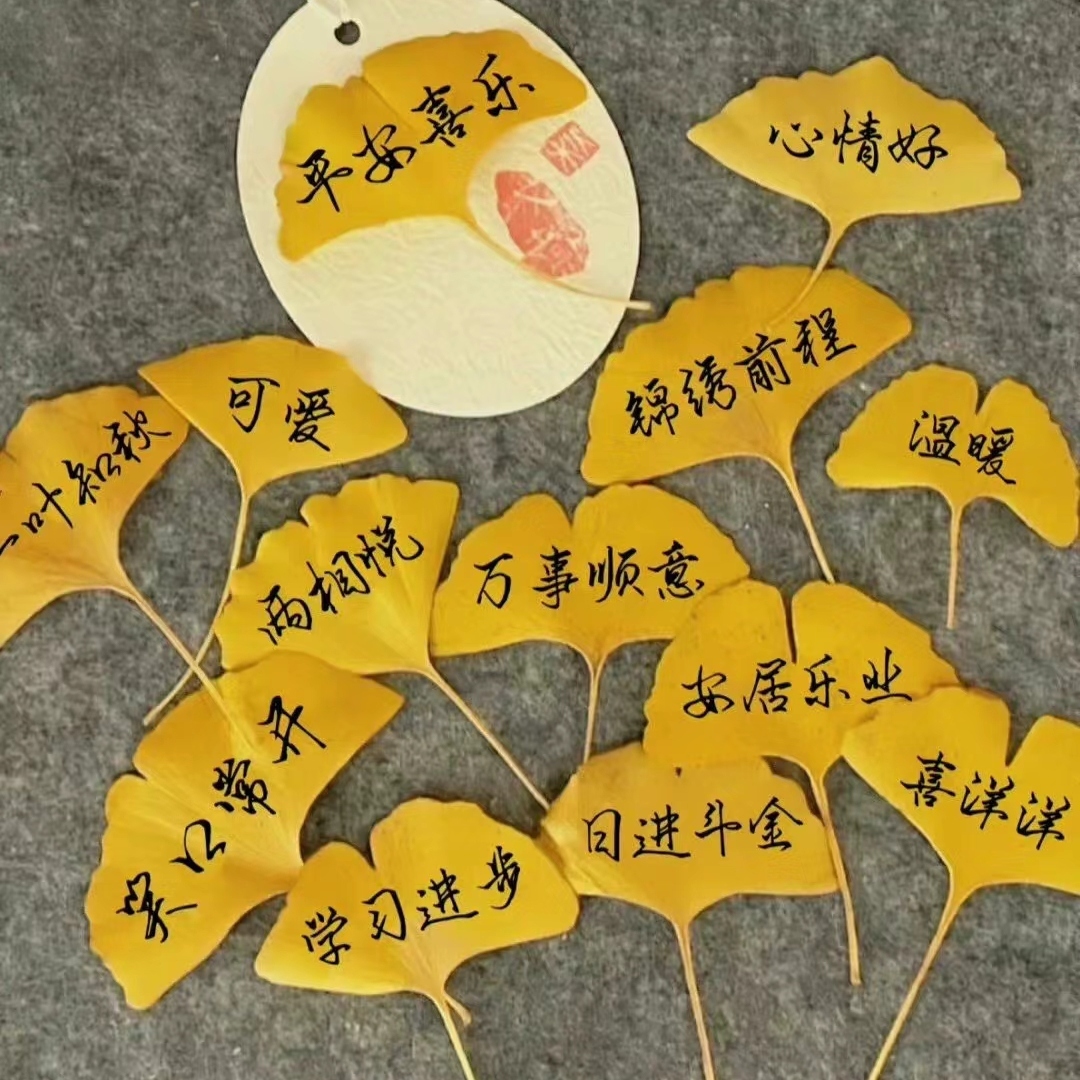 平安喜乐
心情好
锦绣前程
可爱
温暖
一叶知秋
两相悦
万事顺意
安居乐业
笑口常开
喜洋洋
日进斗金
学习进步